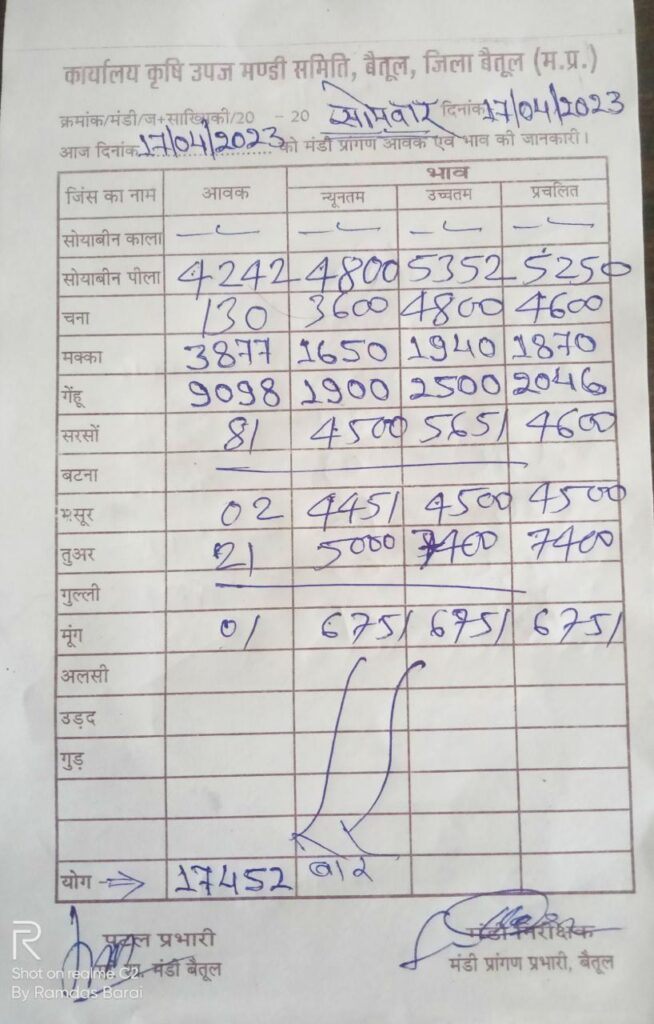 कार्यालय कृषि उपज मण्डी समिति, बैतूल, जिला बैतूल (म.प्र.)
क्रमांक/मंडी/ज+साख्यिकी/20 - 20 सोमवार दिनांक 17/04/2023
आज दिनांक 17/04/2023 को मंडी प्रांगण आवक एवं भाव की जानकारी।
जिंस का नाम आवक भाव
न्यूनतम उच्चतम प्रचलित
सोयाबीन काला
सोयाबीन पीला 4242 4800 5352 5250
चना 130 3600 4800 4600
मक्का 3877 1650 1940 1870
गेंहू 9098 1900 2500 2046
सरसों 81 4500 5651 4600
बटना
मसूर 02 4451 4500 4500
तुअर 21 5000 7400 7400
गुल्ली
मूंग 01 6751 6751 6751
अलसी
उड़द
गुड़
योग → 17452 बोरे
प्रभारी मंडी निरीक्षक
मंडी बैतूल मंडी प्रांगण प्रभारी, बैतूल
R
Shot on realme C2
By Ramdas Barai